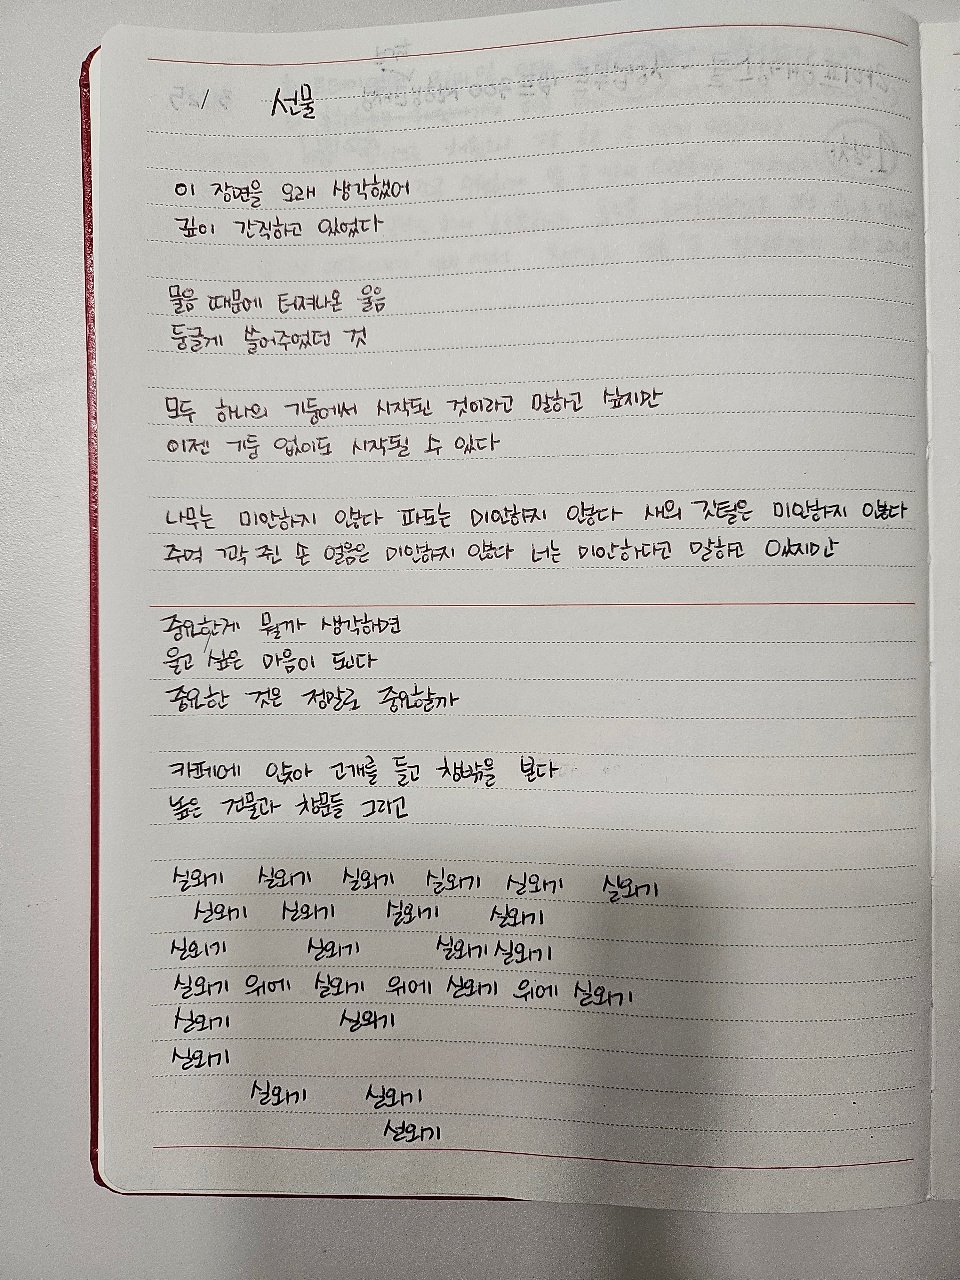 선물
이 장면을 오래 생각했어
깊이 간직하고 있었다
물음 때문에 터져나온 울음
둥글게 쓸어주었던 것
모두 하나의 기둥에서 시작된 것이라고 말하고 싶지만
이젠 기둥 없이도 시작될 수 있다
나무는 미안하지 않다 파도는 미안하지 않다 새의 깃털은 미안하지 않다
주먹 꽉 쥔 손 얼음은 미안하지 않다 너는 미안하다고 말하고 있지만
중요한게 뭘까 생각하면
울고 싶은 마음이 된다
중요한 것은 정말로 중요할까
카페에 앉아 고개를 들고 창밖을 본다
높은 건물과 창문들 그리고
실외기 실외기 실외기 실외기 실외기 실외기
실외기 실외기 실외기 실외기
실외기 실외기 실외기 실외기
실외기 위에 실외기 위에 실외기 위에 실외기
실외기 실외기
실외기
실외기 실외기
실외기